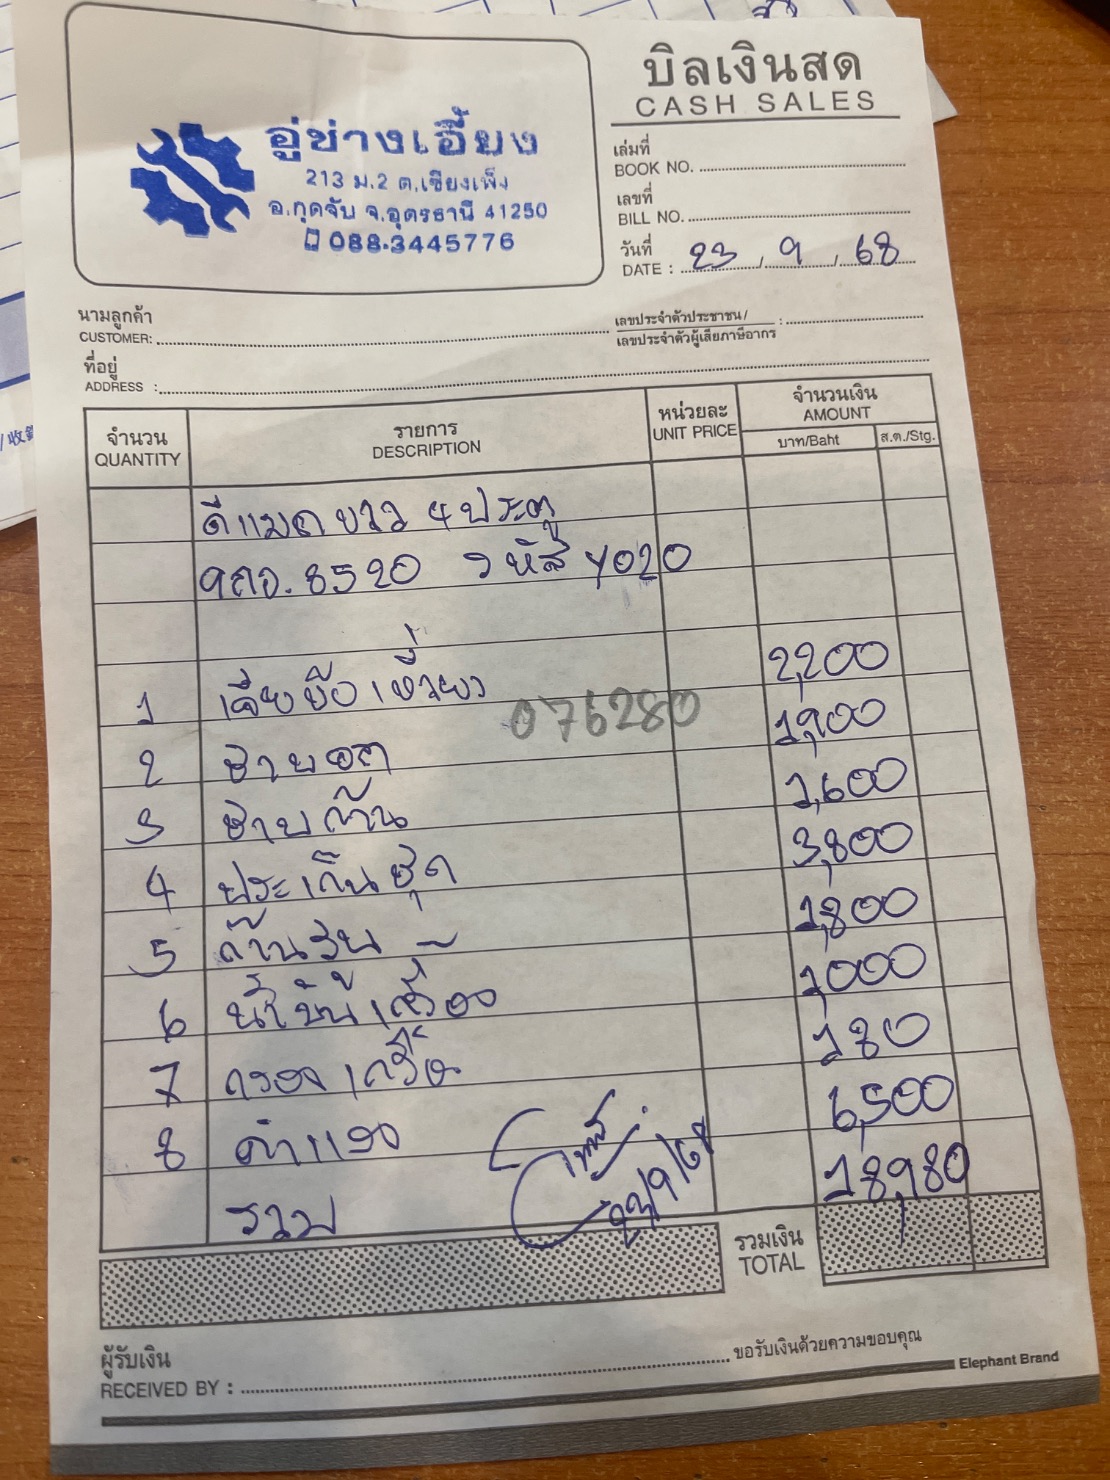 บิลเงินสด
CASH SALES
อู่ช่างเอี้ยง
213 ม.2 ต.เชียงเพ็ง
อ.กุดจับ จ.อุดรธานี 41250
088-3445776
เล่มที่
BOOK NO.
เลขที่
BILL NO.
วันที่
DATE : 23 / 9 / 68
นามลูกค้า
CUSTOMER:
เลขประจำตัวประชาชน/
เลขประจำตัวผู้เสียภาษีอากร :
ที่อยู่
ADDRESS :
จำนวน
QUANTITY
รายการ
DESCRIPTION
หน่วยละ
UNIT PRICE
จำนวนเงิน
AMOUNT
บาท/Baht ส.ต./Stg.
ดีแมค ขาว 4 ประตู
8520 รหัส Y020
1 2,200
076280
2 ชาบอก 1,900
3 ชาบก้าน 1,600
4 ประเก็นชุด 3,800
5 ก้านสูบ 1,800
6 น้ำมันเครื่อง 1,000
7 กรองเครื่อง 180
8 ค่าแรง 6,500
รวม 18,980
รวมเงิน
TOTAL
ผู้รับเงิน
RECEIVED BY :
ขอรับเงินด้วยความขอบคุณ
Elephant Brand